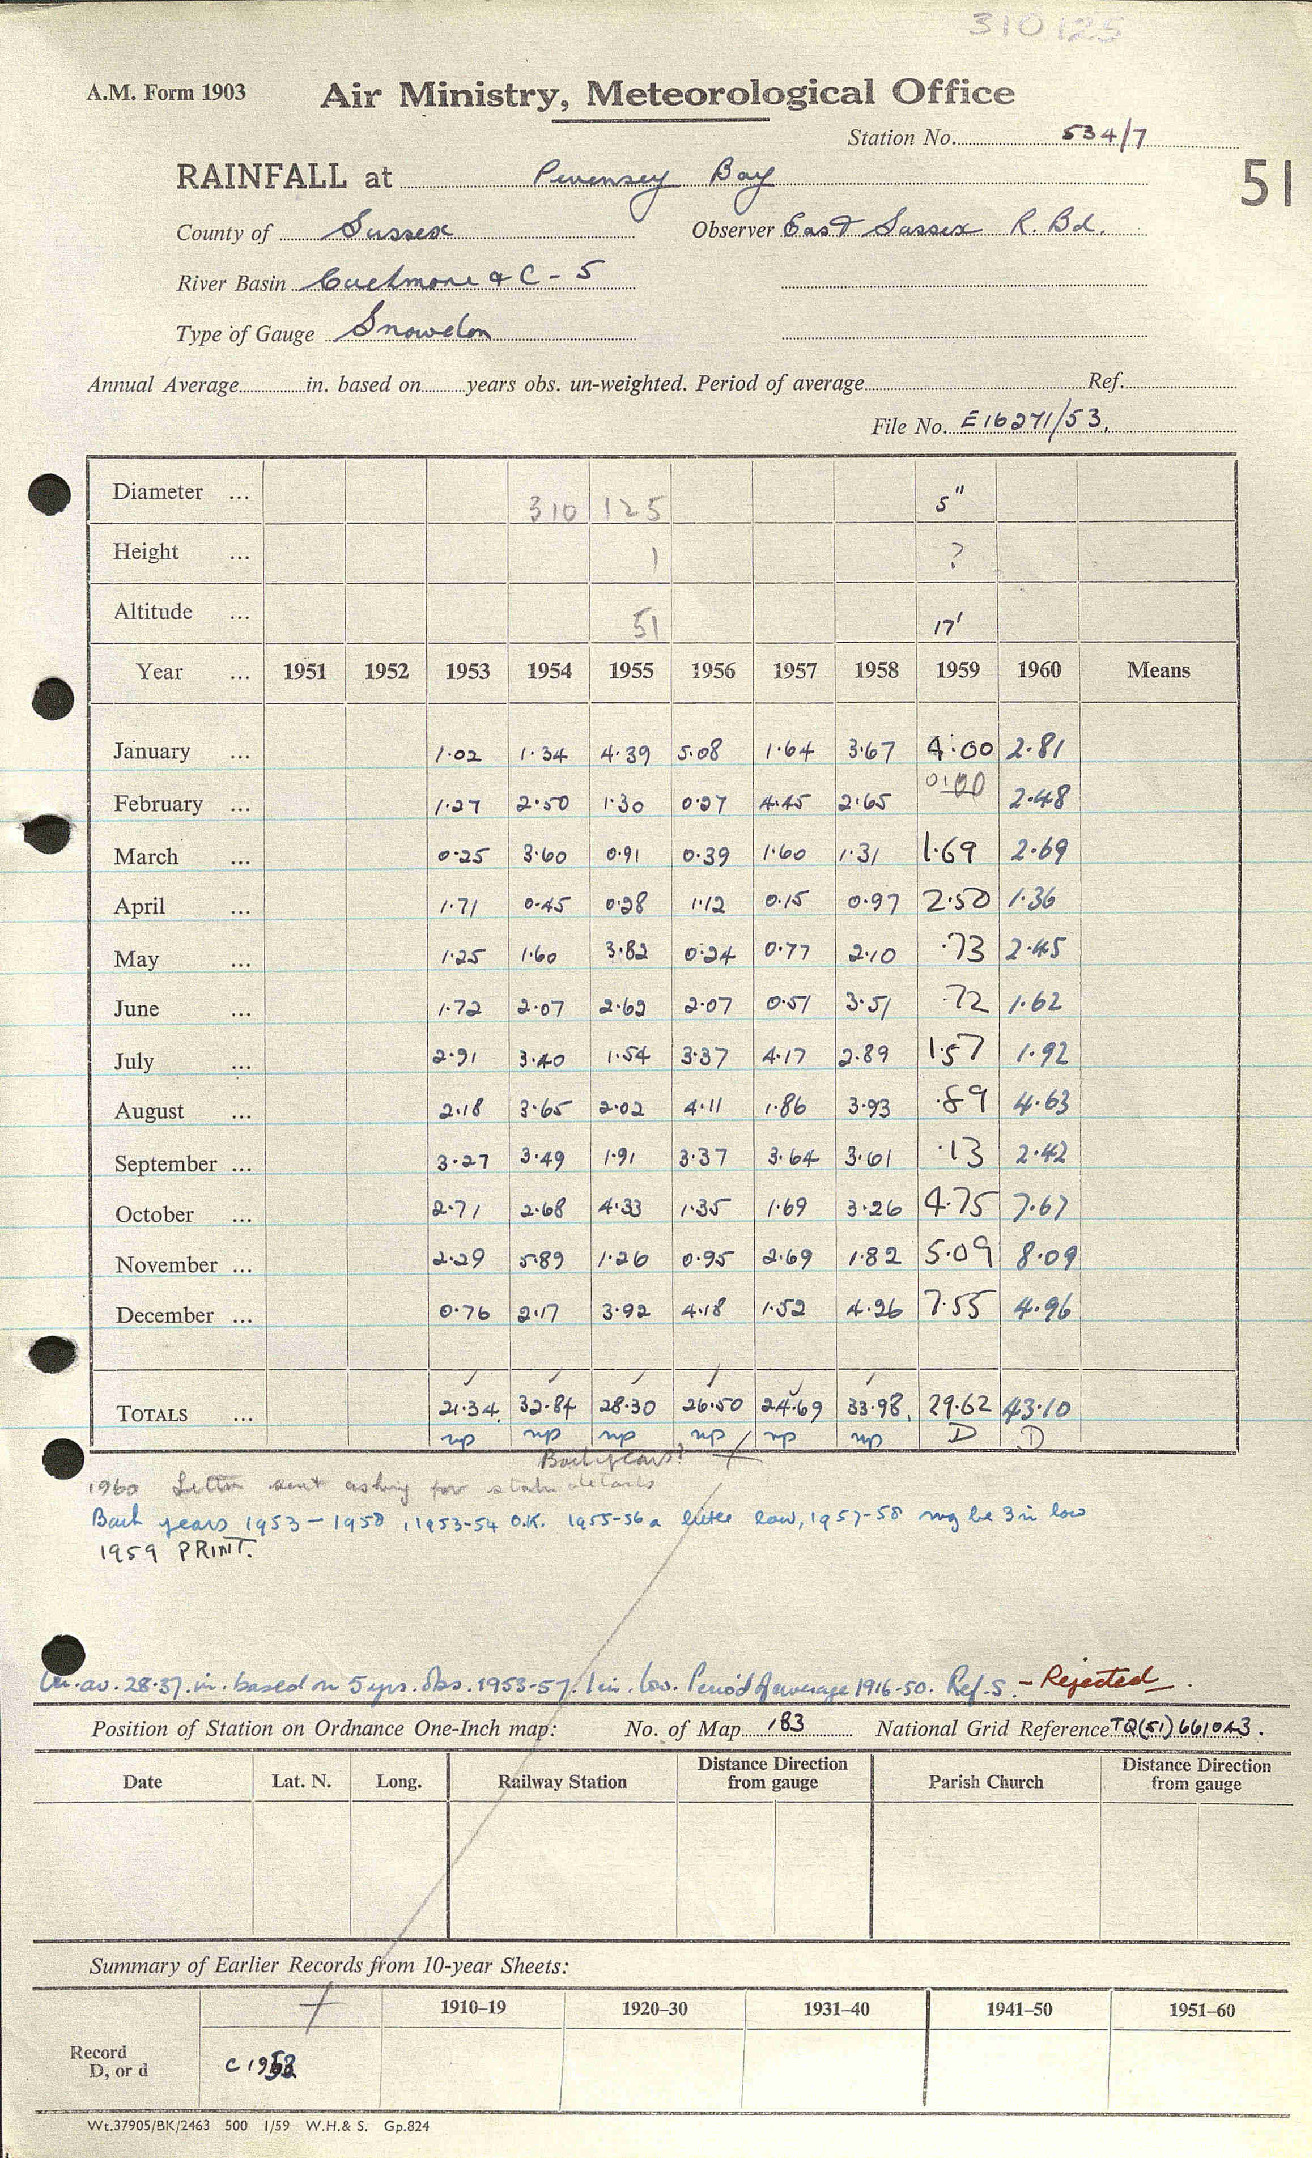 310125
A.M. Form 1903 Air Ministry, Meteorological Office
Station No. 534/7
RAINFALL at Pevensey Bay 51
County of Sussex Observer East Sussex R. Bd.
River Basin Cuckmere & C - 5
Type of Gauge Snowdon
Annual Average in. based on years obs. un-weighted. Period of average Ref.
File No. E16271/53.
Diameter ... 310 125 5"
Height ... 1 ?
Altitude ... 51 17'
Year ... 1951 1952 1953 1954 1955 1956 1957 1958 1959 1960 Means
January ... 1.02 1.34 4.39 5.08 1.64 3.67 4.00 2.81
February ... 1.27 2.50 1.30 0.27 4.45 2.65 0.00 2.48
March ... 0.25 3.60 0.91 0.39 1.60 1.31 1.69 2.69
April ... 1.71 0.45 0.28 1.12 0.15 0.97 2.50 1.36
May ... 1.25 1.60 3.82 0.24 0.77 2.10 .73 2.45
June ... 1.72 2.07 2.62 2.07 0.51 3.51 .72 1.62
July ... 2.91 3.40 1.54 3.37 4.17 2.89 1.57 1.92
August ... 2.18 3.65 2.02 4.11 1.86 3.93 .89 4.63
September ... 3.27 3.49 1.91 3.37 3.64 3.61 .13 2.42
October ... 2.71 2.68 4.33 1.35 1.69 3.26 4.75 7.67
November ... 2.29 5.89 1.26 0.95 2.69 1.82 5.09 8.09
December ... 0.76 2.17 3.92 4.18 1.52 4.26 7.55 4.96
TOTALS ... 21.34 32.84 28.30 26.50 24.69 33.98 29.62 43.10
np np np np np np D D
Back years?
1960 Letter sent asking for statn details
Back years 1953-1958, 1953-54 O.K. 1955-56 a little low, 1957-58 may be 3 in low
1959 PRINT.
av. 28.37 in. based on 5 yrs. obs. 1953-57. 1 in. low. Period of average 1916-50. Ref. S. - Rejected.
Position of Station on Ordnance One-Inch map: No. of Map 183 National Grid Reference TQ(51) 661043.
Date Lat. N. Long. Railway Station Distance Direction from gauge Parish Church Distance Direction from gauge
Summary of Earlier Records from 10-year Sheets:
1910–19 1920–30 1931–40 1941–50 1951–60
Record
D, or d C 1953
Wt.37905/BK/2463 500 1/59 W.H.& S. Gp.824